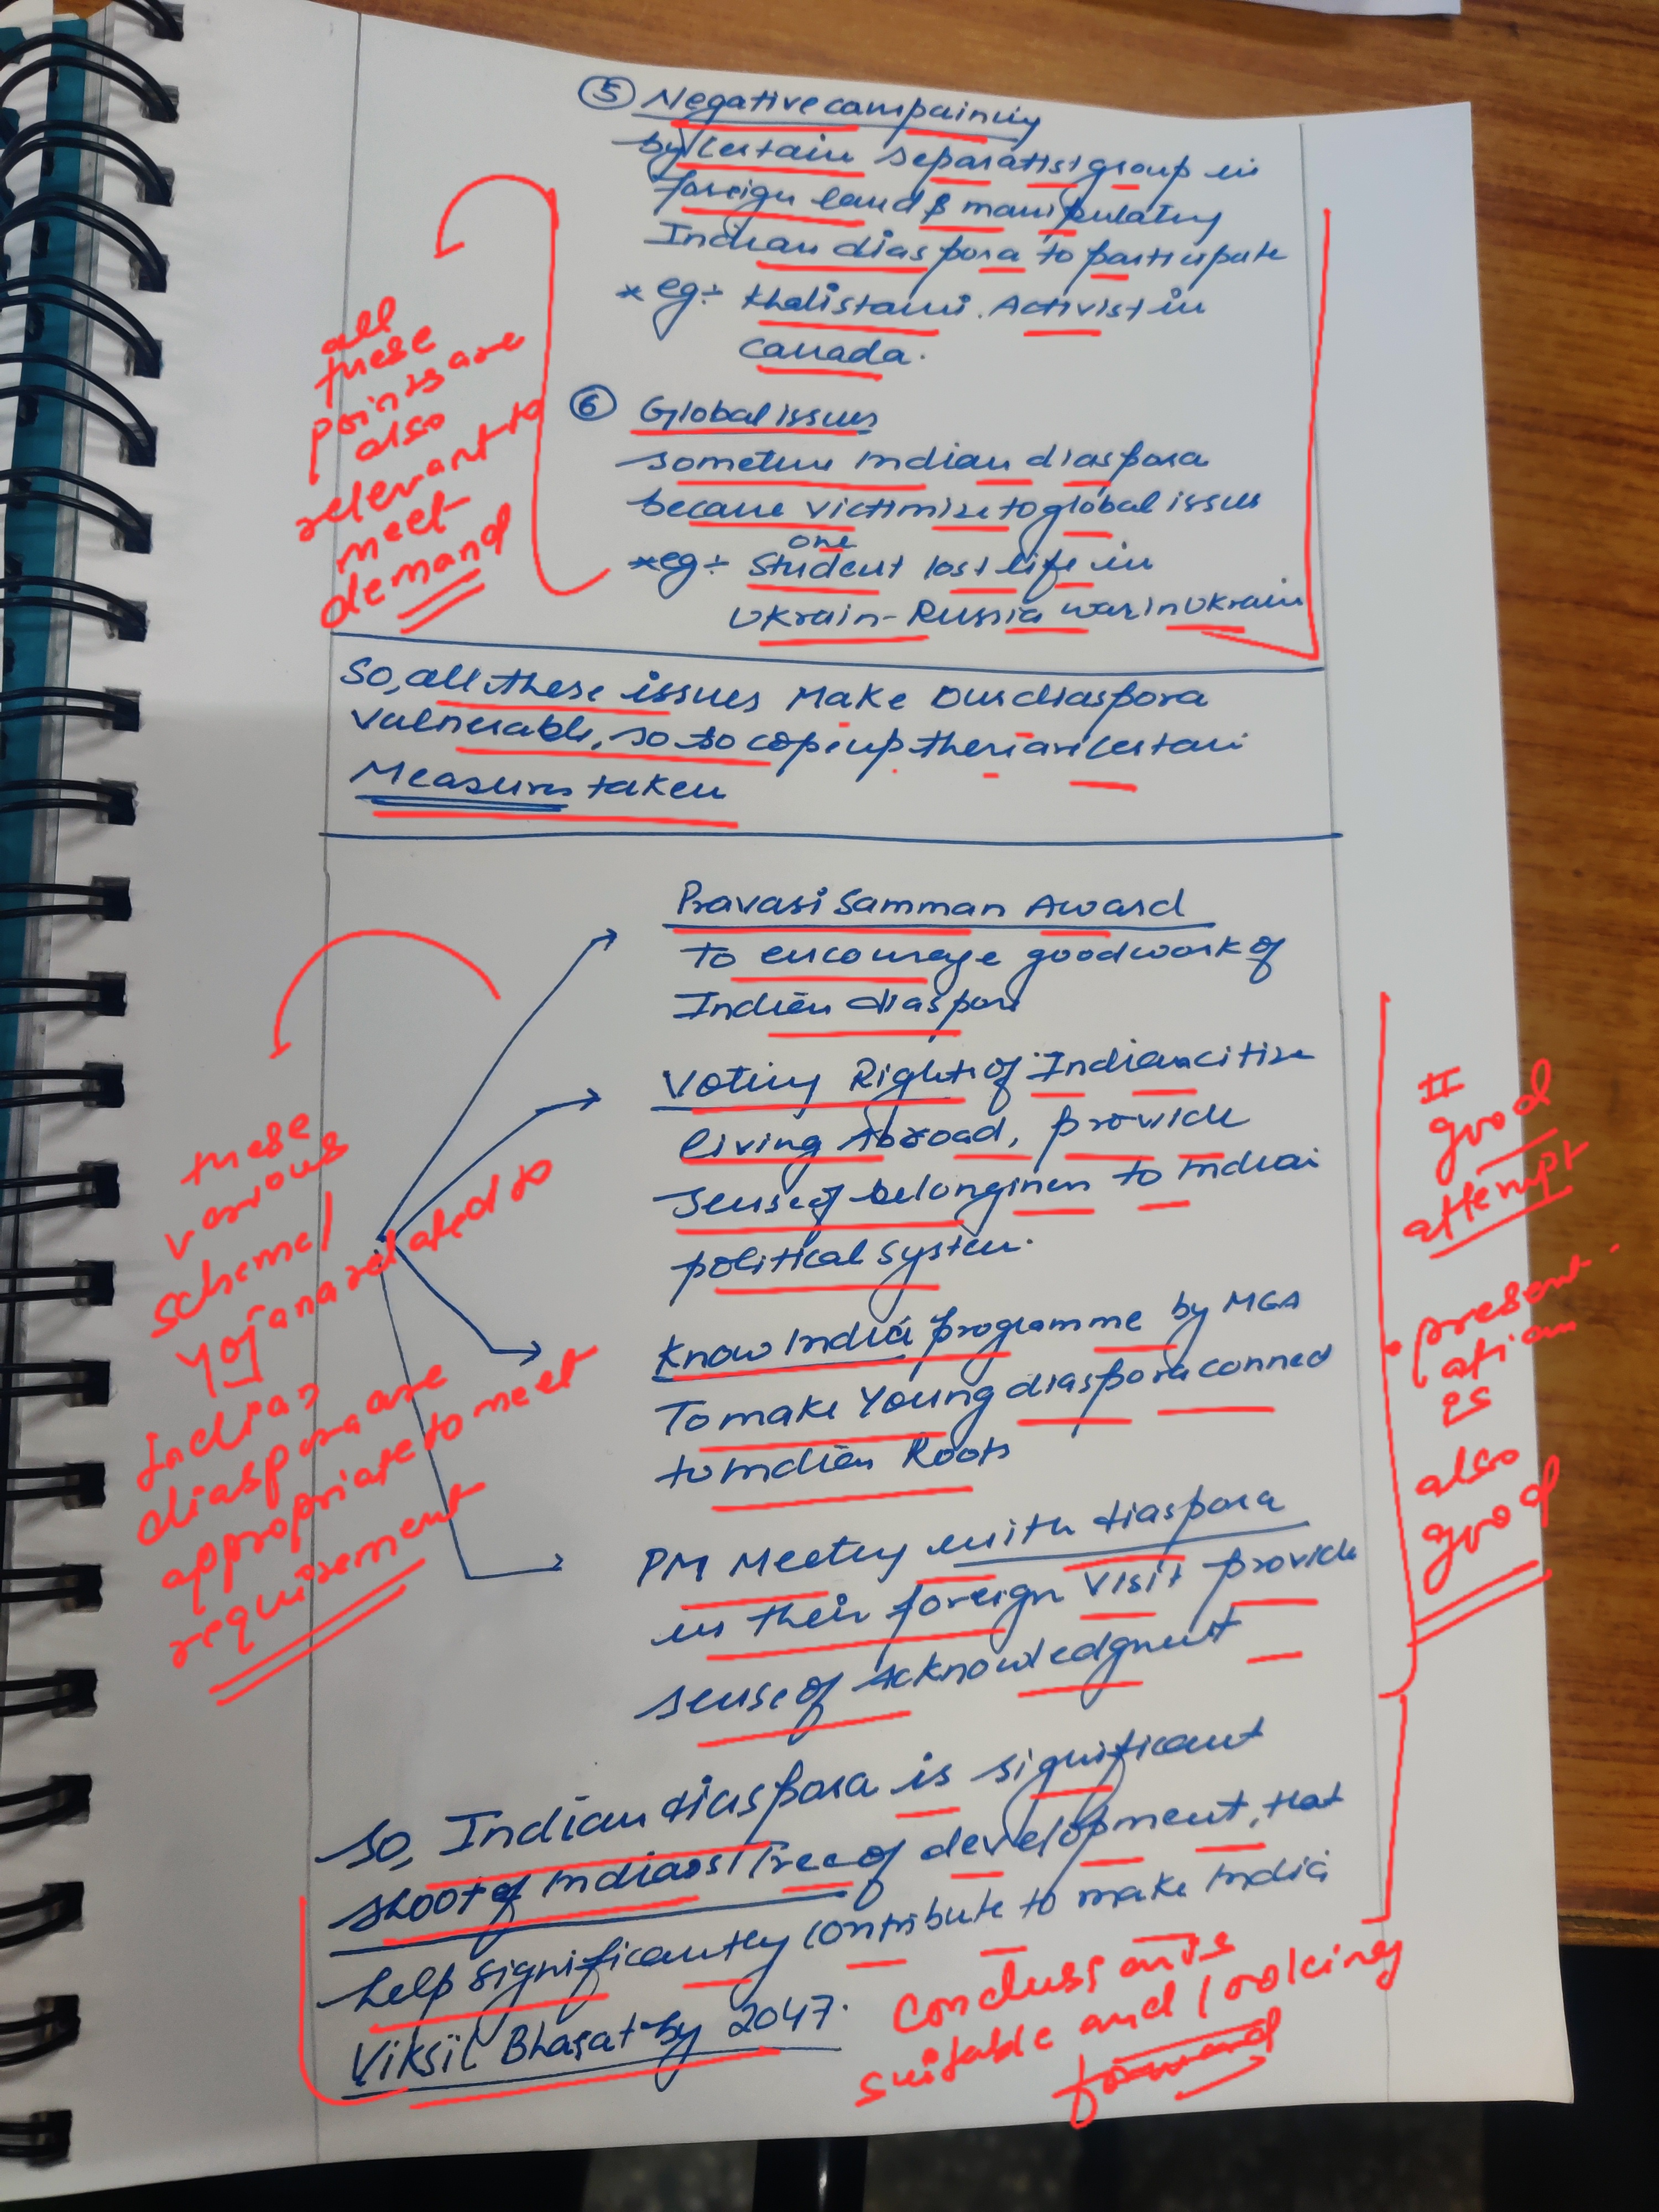 ⑤ Negative campaining
by certain separatist group in
foreign land & manipulating
Indian diaspora to participate
* eg:- Khalistani Activist in
Canada.
all
these
points are
also
relevant to
meet
demand
⑥ Global issues
sometime Indian diaspora
became victimize to global issues
* eg:- one Student lost life in
Ukrain-Russia war in Ukrain
So, all these issues Make Our diaspora
vulnerable, so to cope up there are certain
Measures taken
Pravasi Samman Award
To encourage good work of
Indian diaspora
Voting Right of Indian citize
living Abroad, provide
sense of belonginen to Indian
political system.
Know India programme by MEA
To make Young diaspora conned
to Indian Roots
PM Meeting with diaspora
in their foreign visit provide
sense of acknowledgment
these
various
scheme/
Yojana related to
Indian
diaspora are
appropriate to meet
requirement
good
attempt
• present
ation
is
also
good
So, Indian diaspora is significant
shoot of Indias Tree of development, that
help significantly contribute to make India
Viksit Bharat by 2047.
suitable and looking
forward